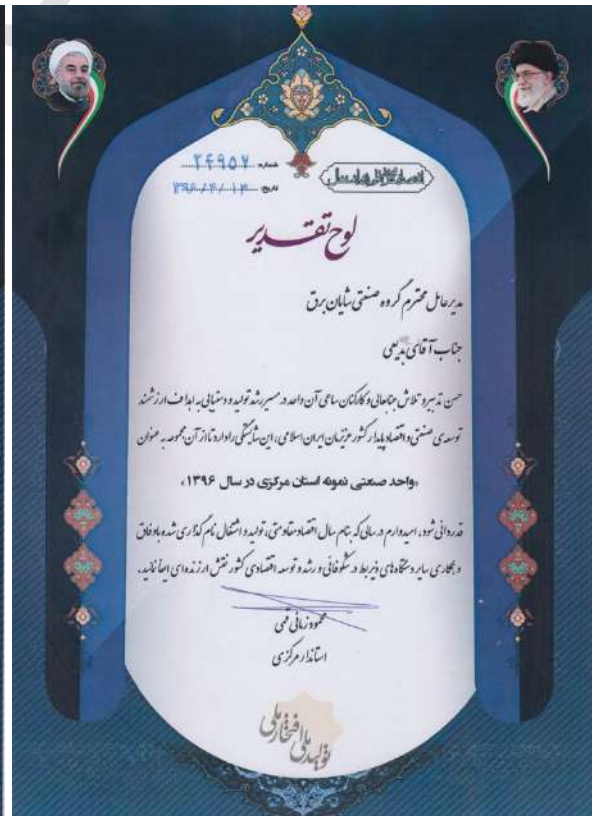 شماره: ۲۴۹۵۷
تاریخ: ۱۳۹۶/۴/۱۳
لوح تقدیر
مدیرعامل محترم گروه صنعتی شایان برق
جناب آقای بدیعی
حسن تدبیر و تلاش جنابعالی و کارکنان ساعی آن واحد در مسیر رشد تولید و دستیابی به اهداف ارزشمند
توسعه‌ی صنعتی و اقتصاد پایدار کشور عزیزمان ایران اسلامی، این شایستگی را دارد تا از آن مجموعه به عنوان
«واحد صنعتی نمونه استان مرکزی در سال ۱۳۹۶»
قدردانی شود، امیدوارم در سالی که بنام سال اقتصاد مقاومتی، تولید و اشتغال نام گذاری شده با وفاق
و همکاری سایر دستگاه های ذیربط در شکوفائی و رشد و توسعه اقتصادی کشور نقش ارزنده ای ایفا نمائید.
محمود زمانی قمی
استاندار مرکزی
تولید ملی افتخار ملی